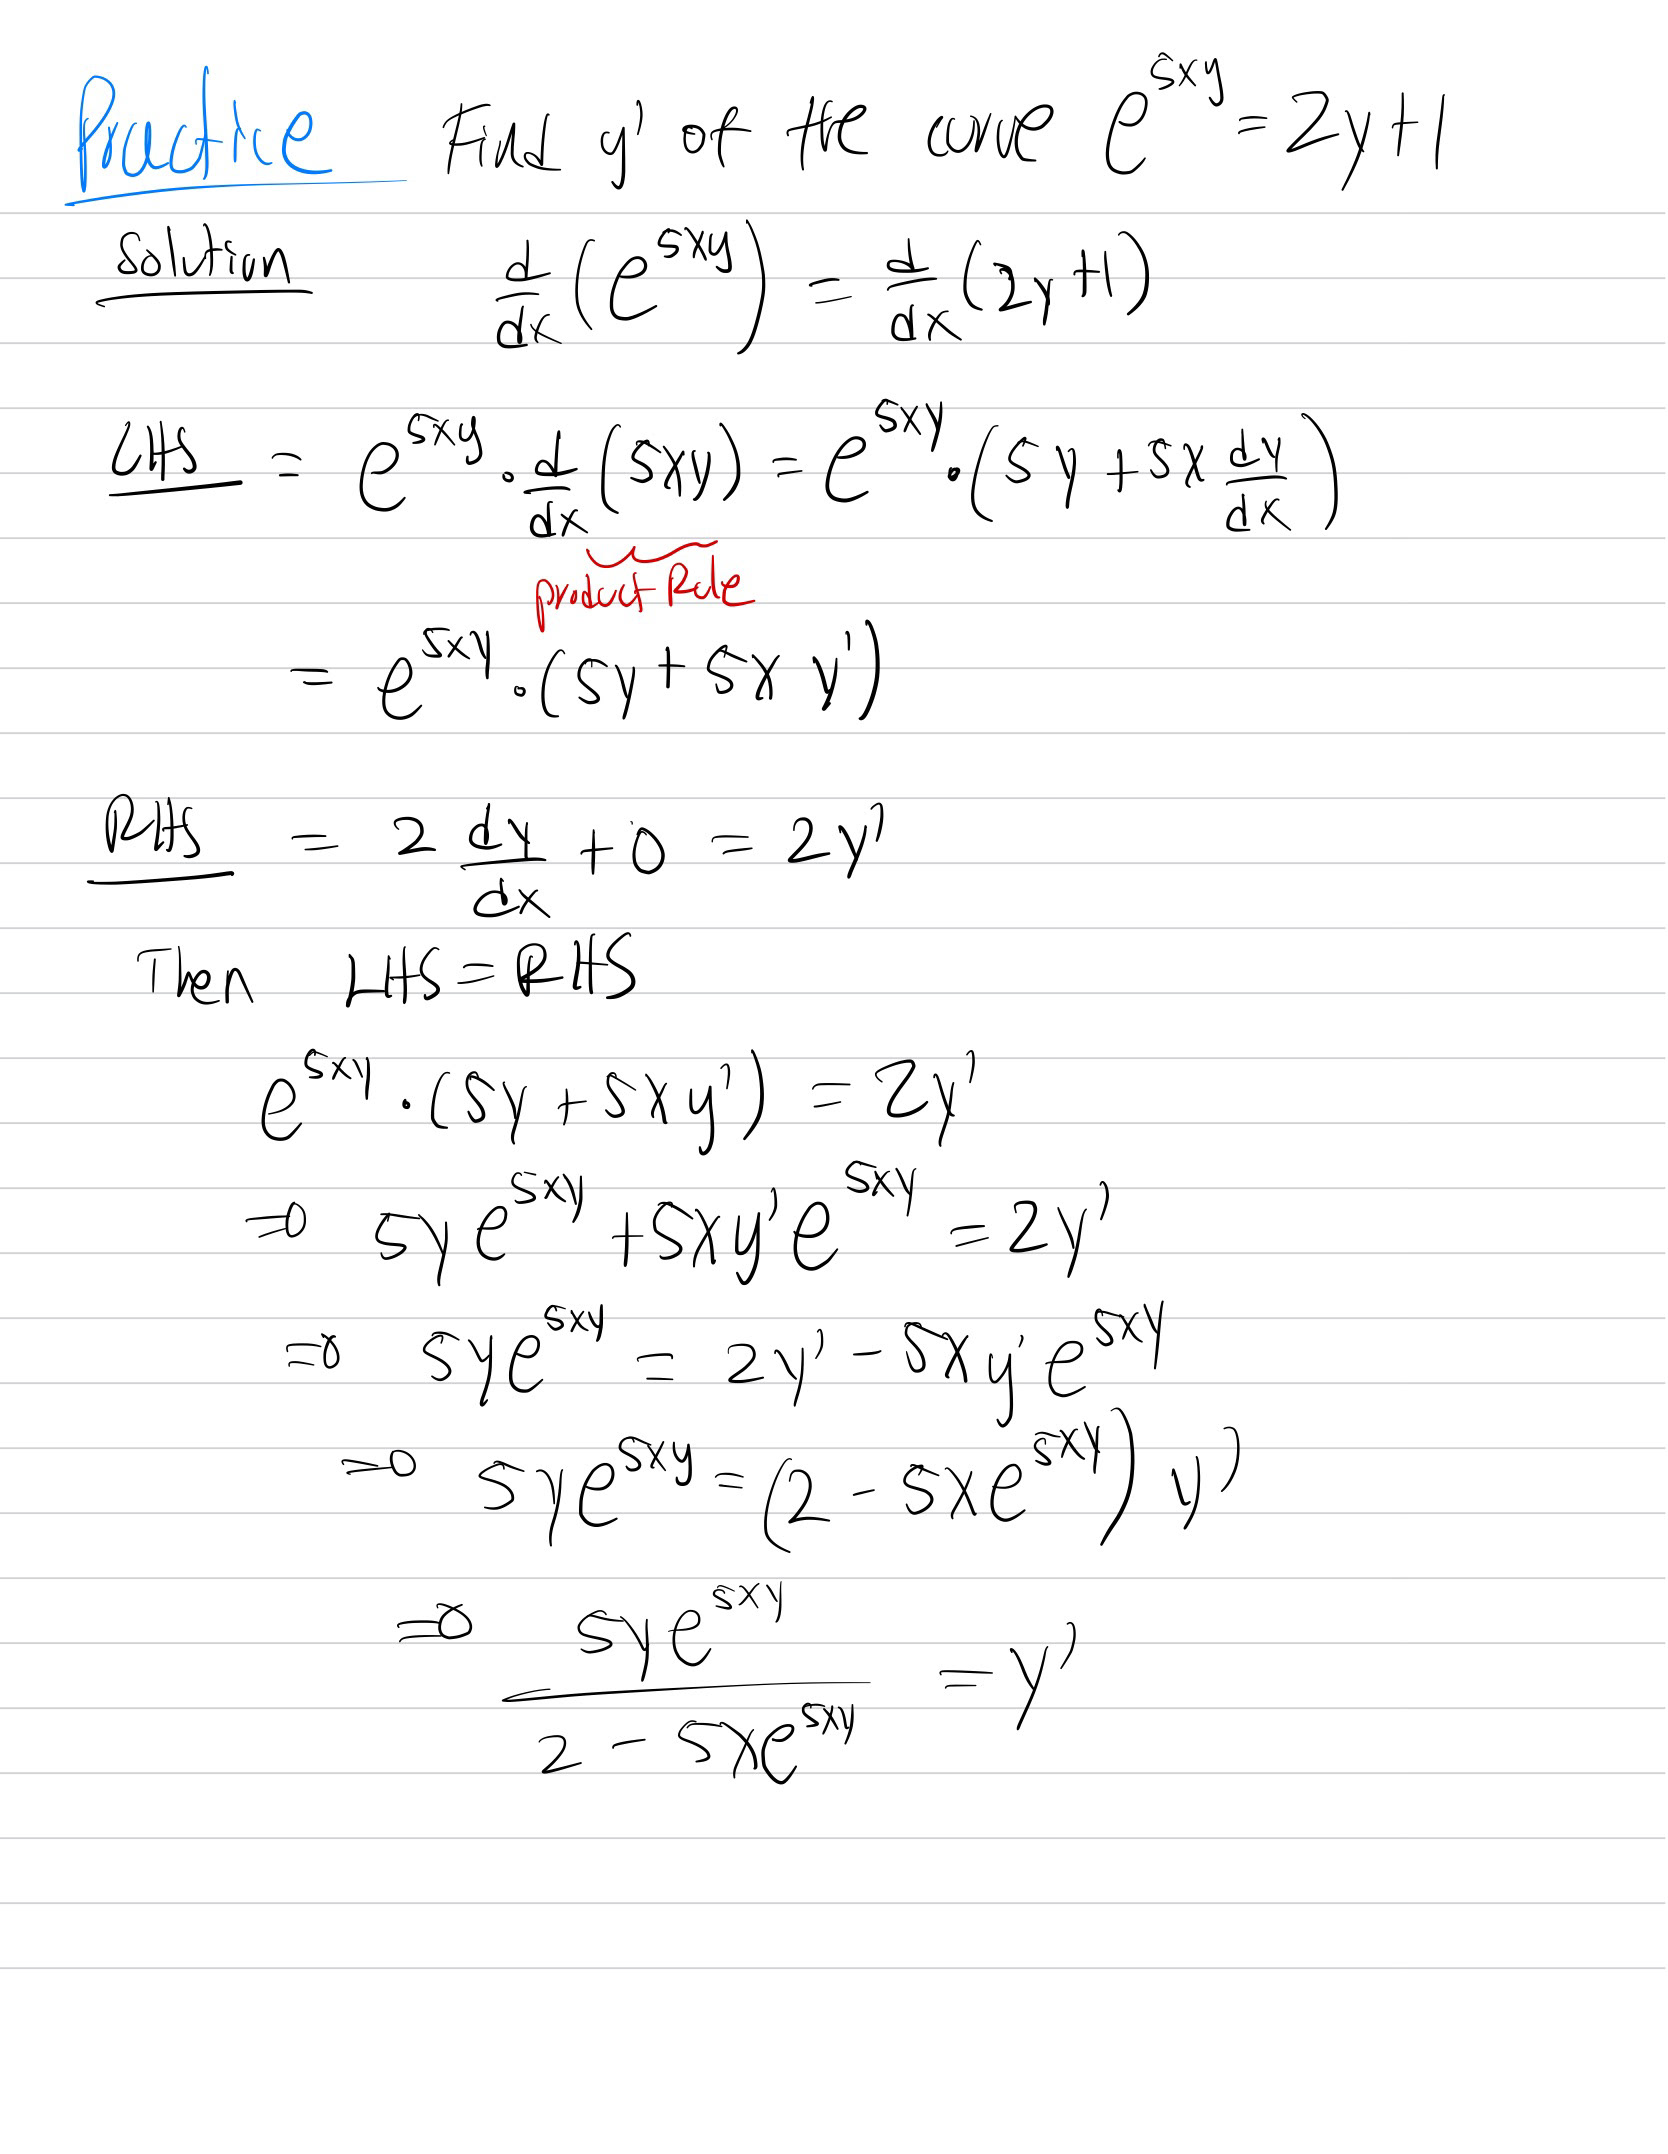 Practice Find y' of the curve e^{5xy} = 2y+1
Solution d/dx (e^{5xy}) = d/dx (2y+1)
LHS = e^{5xy} · d/dx (5xy) = e^{5xy} · (5y + 5x dy/dx)
product Rule
= e^{5xy} · (5y + 5x y')
RHS = 2 dy/dx + 0 = 2y'
Then LHS = RHS
e^{5xy} · (5y + 5xy') = 2y'
⇒ 5ye^{5xy} + 5xy'e^{5xy} = 2y'
⇒ 5ye^{5xy} = 2y' - 5xy'e^{5xy}
⇒ 5ye^{5xy} = (2 - 5xe^{5xy}) y'
⇒ 5ye^{5xy} / 2 - 5xe^{5xy} = y'